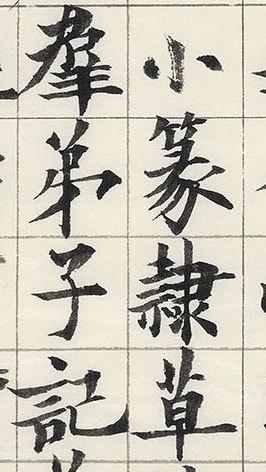 小篆隸草
羣弟子記